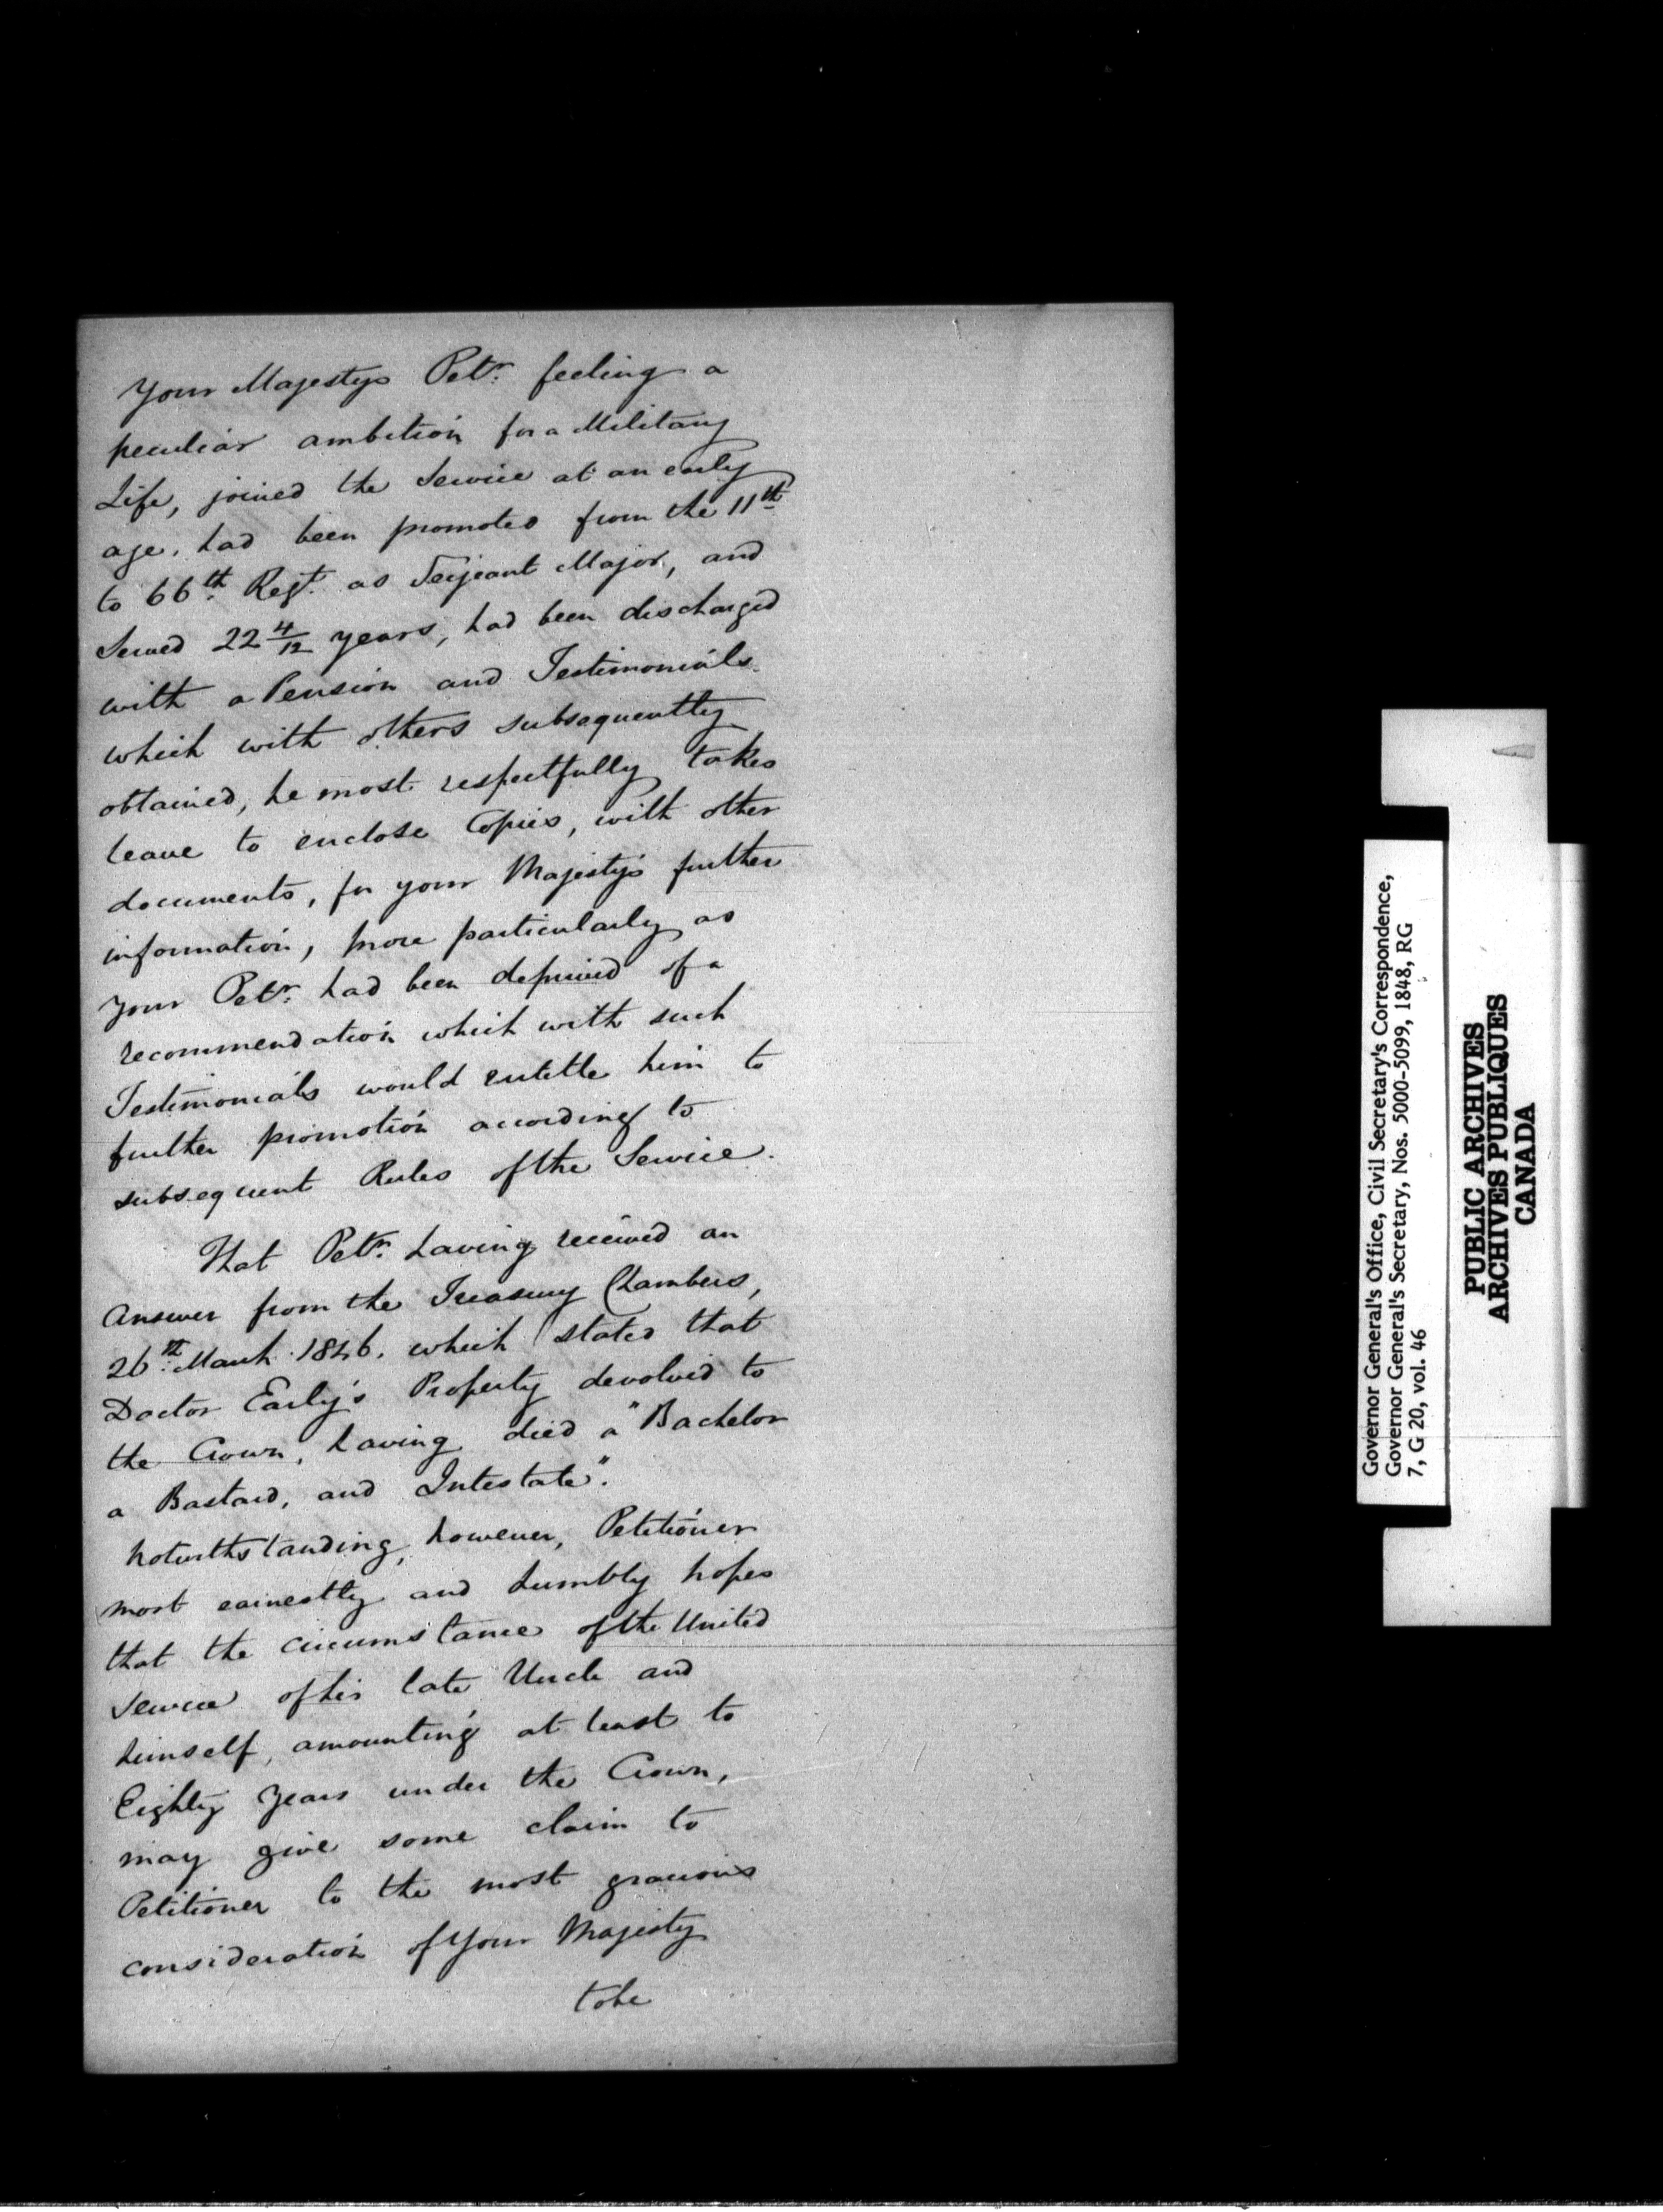 Your Majestys Petr. feeling a
peculiar ambition for a Military
Life, joined the Service at an early
age, had been promoted from the 11th
to 66th. Regt. as Serjeant Major, and
Served 22 4/12 years, had been discharged
with a Pension and Testimonials
which with others subsequently
obtained, he most respectfully takes
leave to enclose Copies, with other
documents, for your Majesty's further
information, more particularly as
Your Petr. had been deprived of a
recommendation which with such
Testimonials would entitle him to
further promotion according to
subsequent Rules of the Service.
That Petr. having received an
Answer from the Treasury Chambers,
26th. March 1846. which stated that
Doctor Early's Property devolved to
the Crown, having died a "Bachelor
a Bastard, and Intestate".
Notwithstanding, however, Petitioner
most earnestly and humbly hopes
that the circumstance of the United
Service of his late Uncle and
himself, amounting at least to
Eighty Years under the Crown,
may give some claim to
Petitioner to the most gracious
consideration of Your Majesty
to be
Governor General's Office, Civil Secretary's Correspondence,
Governor General's Secretary, Nos. 5000-5099, 1848, RG
7, G 20, vol. 46
PUBLIC ARCHIVES
ARCHIVES PUBLIQUES
CANADA